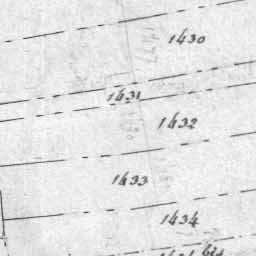 1430
1431
1432
1433
1434
bis